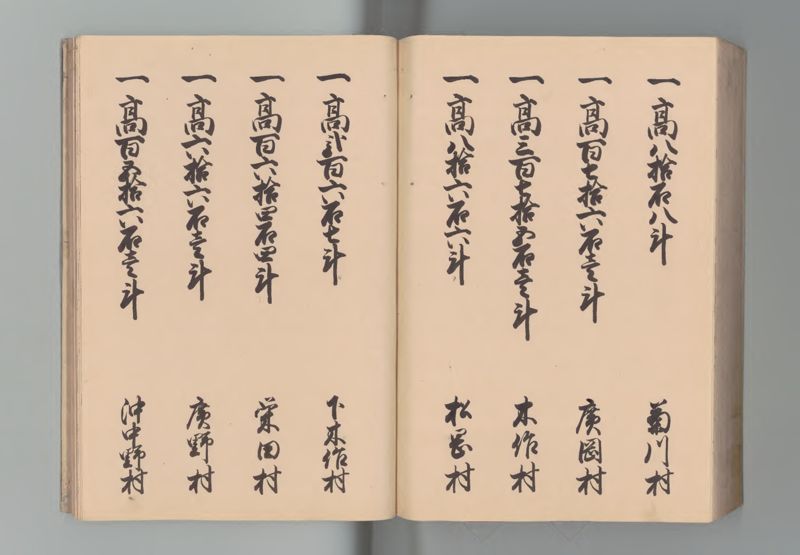 一高八拾石八斗 菊川村
一高百七拾六石壱斗 廣岡村
一高三百七拾五石壱斗 木作村
一高八拾六石六斗 松岡村
一高弐百六石七斗 下木作村
一高百六拾四石四斗 栄田村
一高六拾六石壱斗 廣野村
一高百五拾六石壱斗 沖中野村